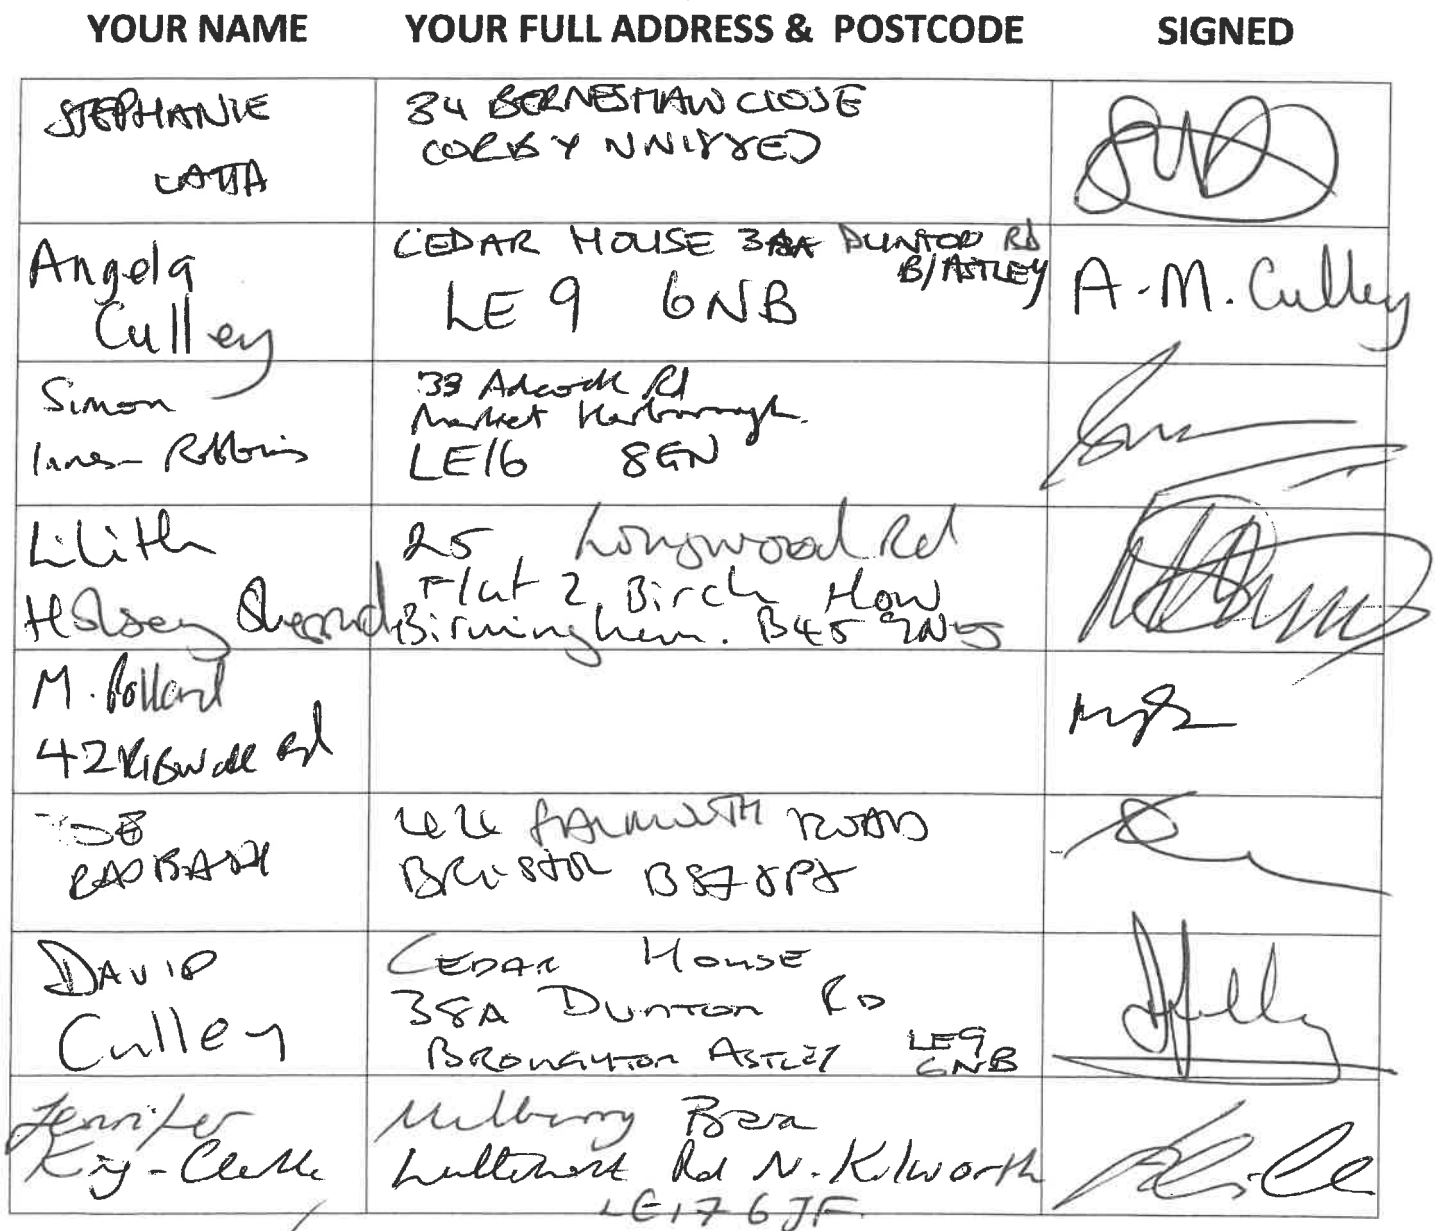 YOUR NAME YOUR FULL ADDRESS & POSTCODE SIGNED
STEPHANIE
LATTA
34 BERNESHAW CLOSE
CORBY NN18 8ED
Angela
Culley
CEDAR HOUSE 38A DUNTON Rd
B/ASTLEY
LE9 6NB
A.M. Culley
Simon
Innes-Robbins
33 Adcock Rd
Market Harborough.
LE16 8GN
Lilith
Halsey
25, Longwood Rd
Flat 2, Birch How
Birmingham. B45 9NS
M. Pollard
42 Kibworth Rd
RADBASH
FALMOUTH ROAD
BRISTOL BS7 8PX
DAVID
Culley
CEDAR HOUSE
38A DUNTON RD
BROUGHTON ASTLEY LE9
6NB
Jennifer
King-Clarke
Mulberry
Rd N. Kilworth
LE17 6JF